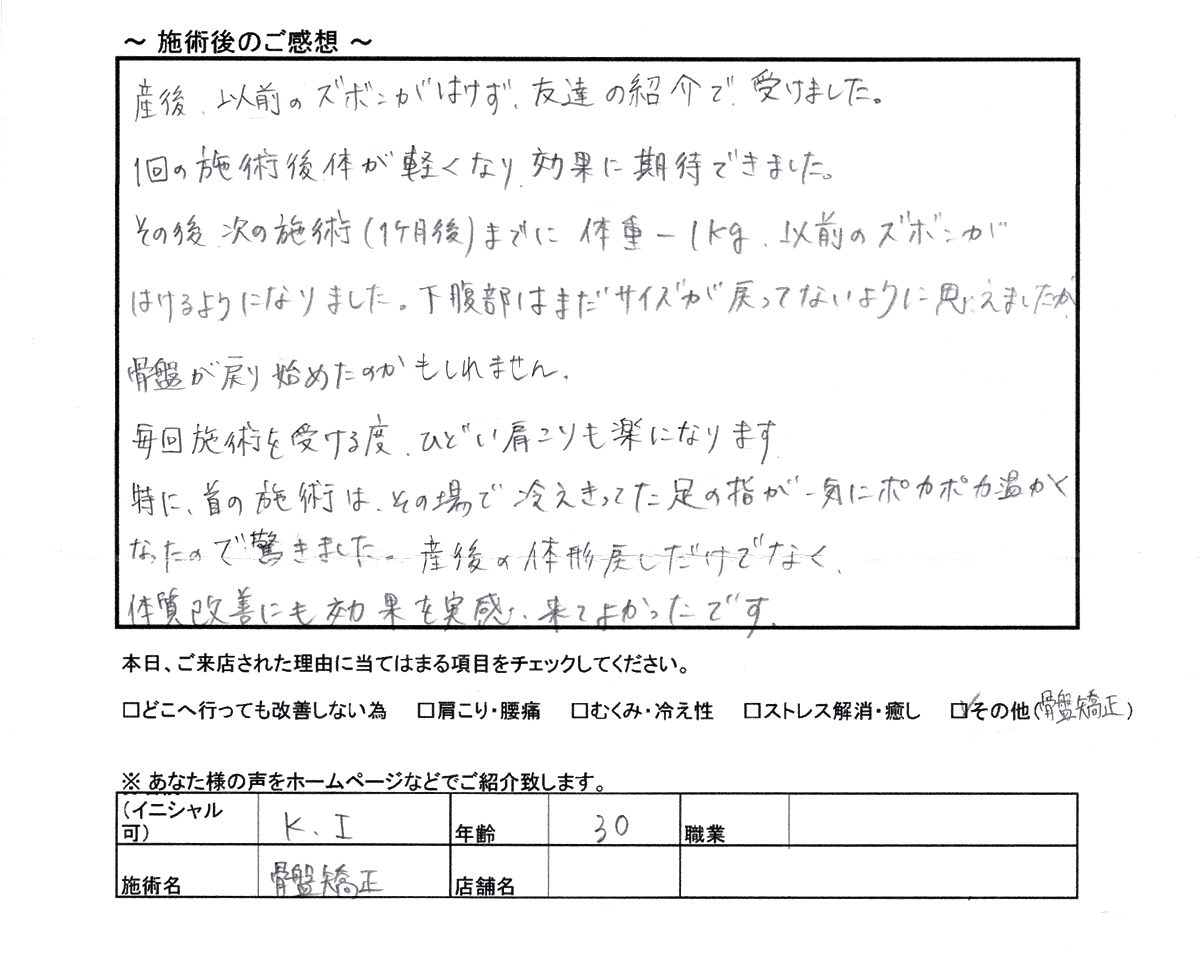 ～ 施術後のご感想 ～
産後、以前のズボンがはけず、友達の紹介で、受けました。
1回の施術後、体が軽くなり、効果に期待できました。
その後、次の施術(1ヶ月後)までに 体重−1kg、以前のズボンが
はけるようになりました。下腹部はまだサイズが戻ってないように思えましたが、
骨盤が戻り始めたのかもしれません。
毎回施術を受ける度、ひどい肩こりも楽になります
特に、首の施術は、その場で冷えきってた足の指が一気にポカポカ温かく
なったので驚きました。産後の体形戻しだけでなく、
体質改善にも効果を実感し、来てよかったです。
本日、ご来店された理由に当てはまる項目をチェックしてください。
□どこへ行っても改善しない為 □肩こり・腰痛 □むくみ・冷え性 □ストレス解消・癒し ☑その他(骨盤矯正)
※ あなた様の声をホームページなどでご紹介致します。
(イニシャル可) K.I 年齢 30 職業
施術名 骨盤矯正 店舗名